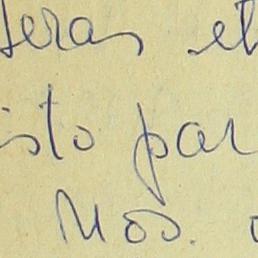 teras et
isto par
Mos.